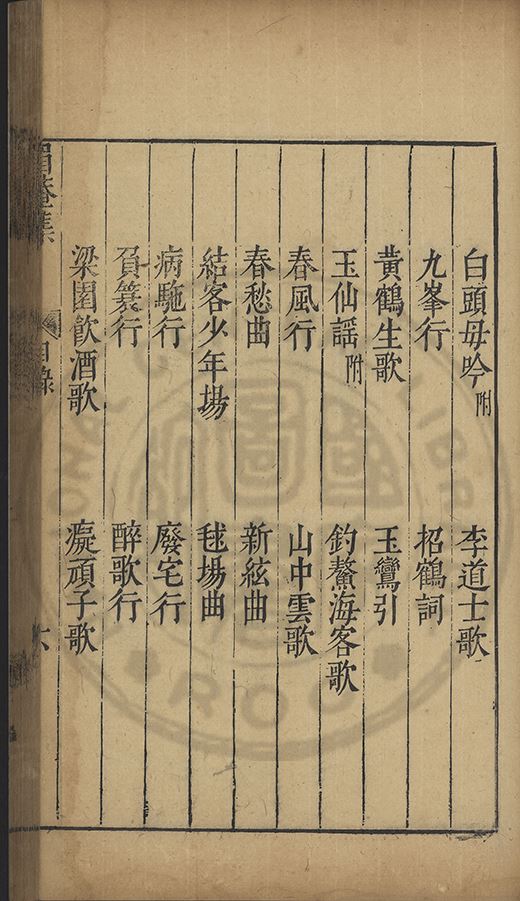 白頭毋吟附 李道士歌
九峯行 招鶴詞
黃鶴生歌 玉鸞引
玉仙謡附 釣鰲海客歌
春風行 山中雲歌
春愁曲 新絃曲
結客少年塲 毬塲曲
病駞行 廢宅行
負薪行 醉歌行
梁園飲酒歌 癡頑子歌
眉菴集 目錄 六